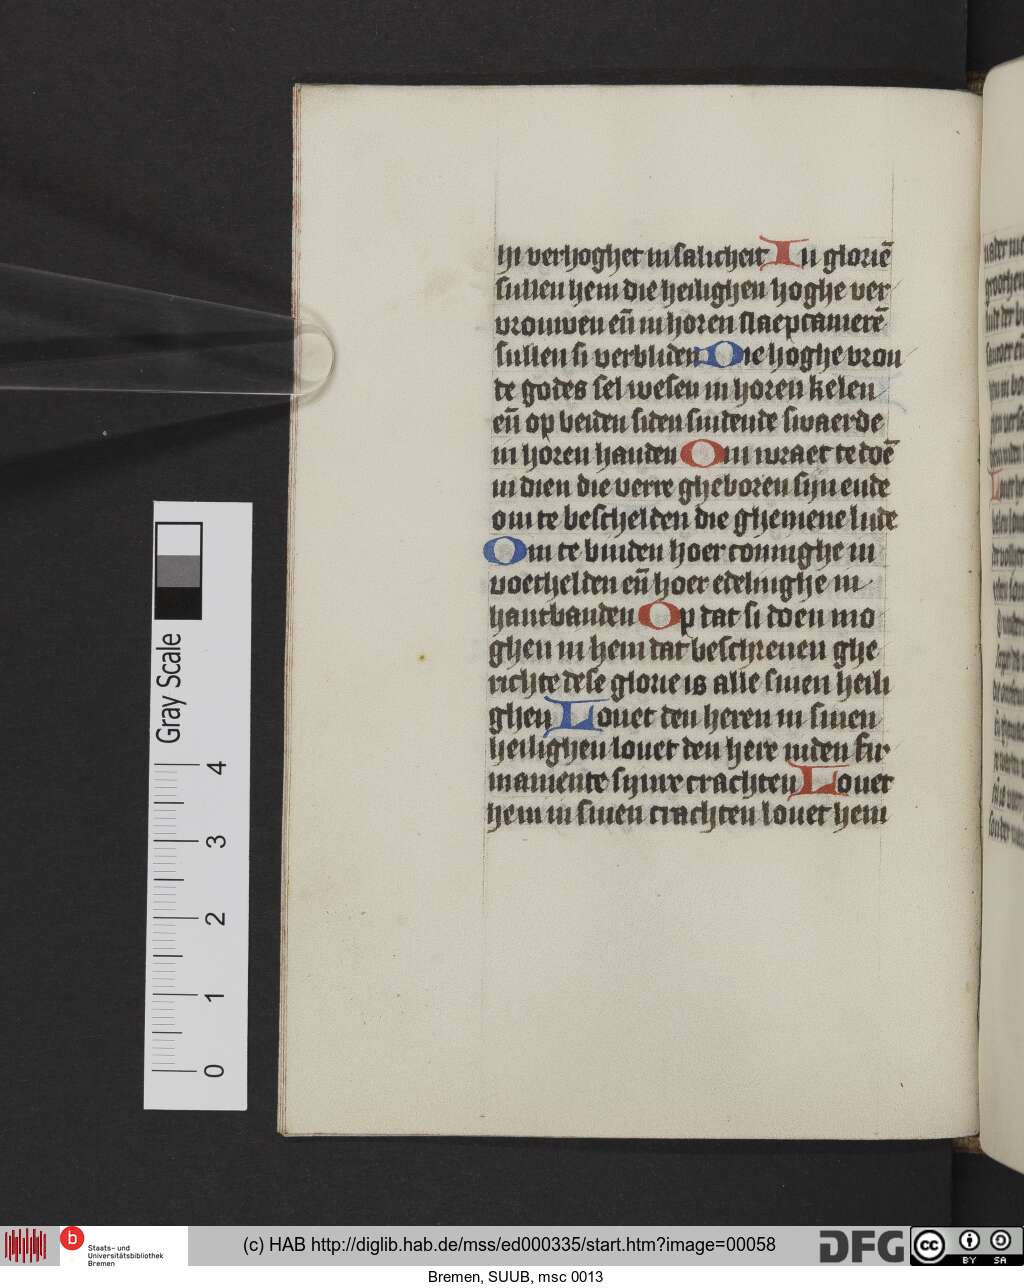 hi verhoghet in salicheit In gloriē
sullen hem die heilighen hoghe ver
vrouwen eñ in horen slaepcamerē
sullen si verbliden Die hoghe vrou
de godes sel wesen in horen kelen
eñ op beiden siden sindende swaerde
in horen handen Om wraec te doē
in dien die verre gheboren sijn ende
om te beschelden die ghemene lude
Om te binden hoer coninghe in
voethelden eñ hoer edelinghe in
hantbanden Op dat si doen mo
ghen in hem dat beschreuen ghe
richte dese glorie is alle sinen heili
ghen Louet den heren in sinen
heilighen louet den here inden fir
mamente sijnre crachten Louet
hem in sinen crachten louet hem
Gray Scale
4
3
2
1
0
b Staats- und
Universitätsbibliothek
Bremen
(c) HAB http://diglib.hab.de/mss/ed000335/start.htm?image=00058
DFG
cc BY SA
Bremen, SUUB, msc 0013